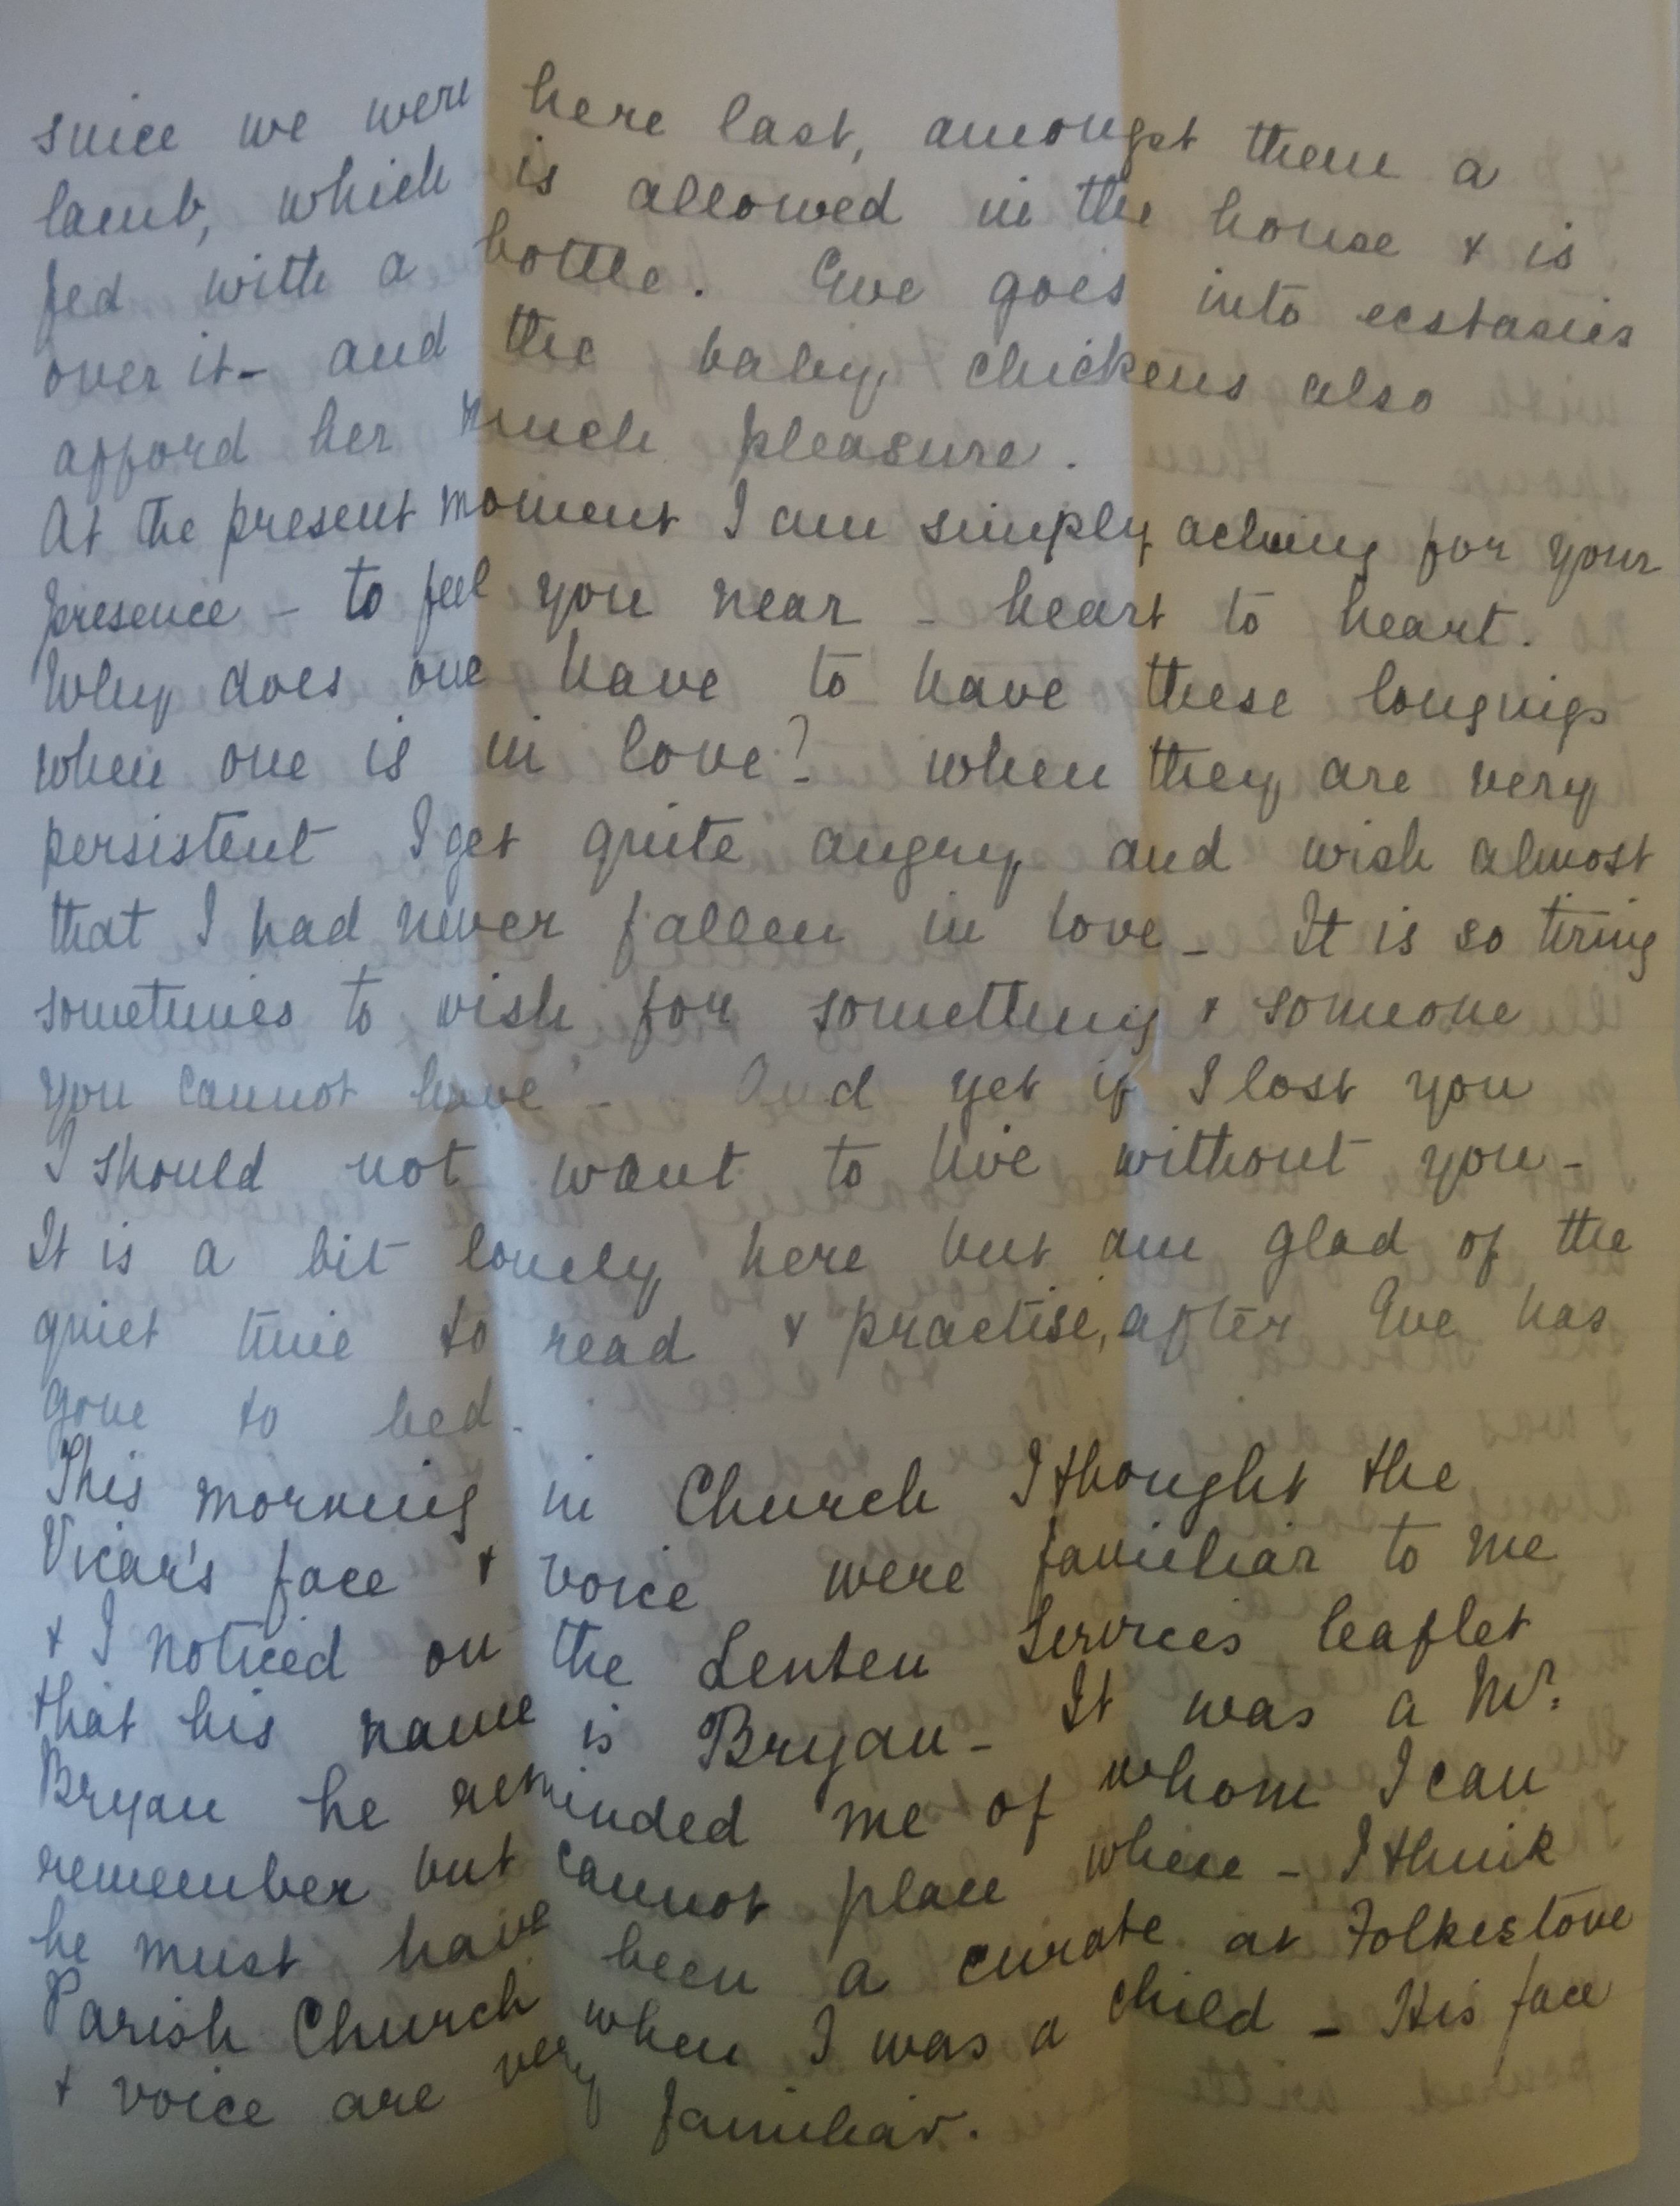 since we were here last, amongst them a
lamb, which is allowed in the house & is
fed with a bottle. Eve goes into ecstasies
over it - and the baby chickens also
afford her much pleasure.
At the present moment I am simply aching for your
presence - to feel you near - heart to heart.
Why does one have to have these longings
when one is in love? When they are very
persistent I get quite angry and wish almost
that I had never fallen in love - It is so tiring
sometimes to wish for something & someone
you cannot have - And yet if I lost you
I should not want to live without you -
It is a bit lonely here but am glad of the
quiet time to read & practise, after Eve has
gone to bed.
This morning in Church I thought the
Vicar's face & voice were familiar to me
& I noticed on the Lenten Services leaflet
that his name is Bryan - It was a Mr.
Bryan he reminded me of whom I can
remember but cannot place where - I think
he must have been a curate at Folkestone
Parish Church when I was a child - His face
& voice are very familiar.